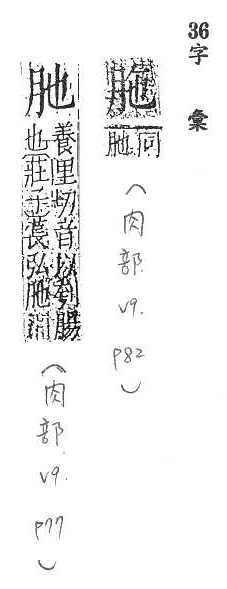 36
字彙
同
胣
(肉部. v9. p82)
胣
養里切音以刳腸
也莊子萇弘胣
(肉部. v9. p77)